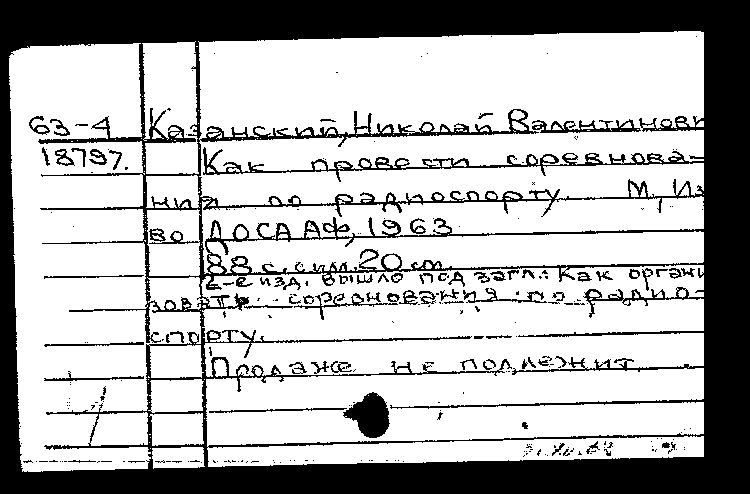 63-4 Казанский, Николай Валентинови
18797. Как провести соревнова-
ния по радиоспорту М, Из
во ДОСААФ, 1963
88 с. с илл. 20 см.
2-е изд. вышло под загл.: Как органи
зовать соревнования по радио-
спорту.
Продаже не подлежит